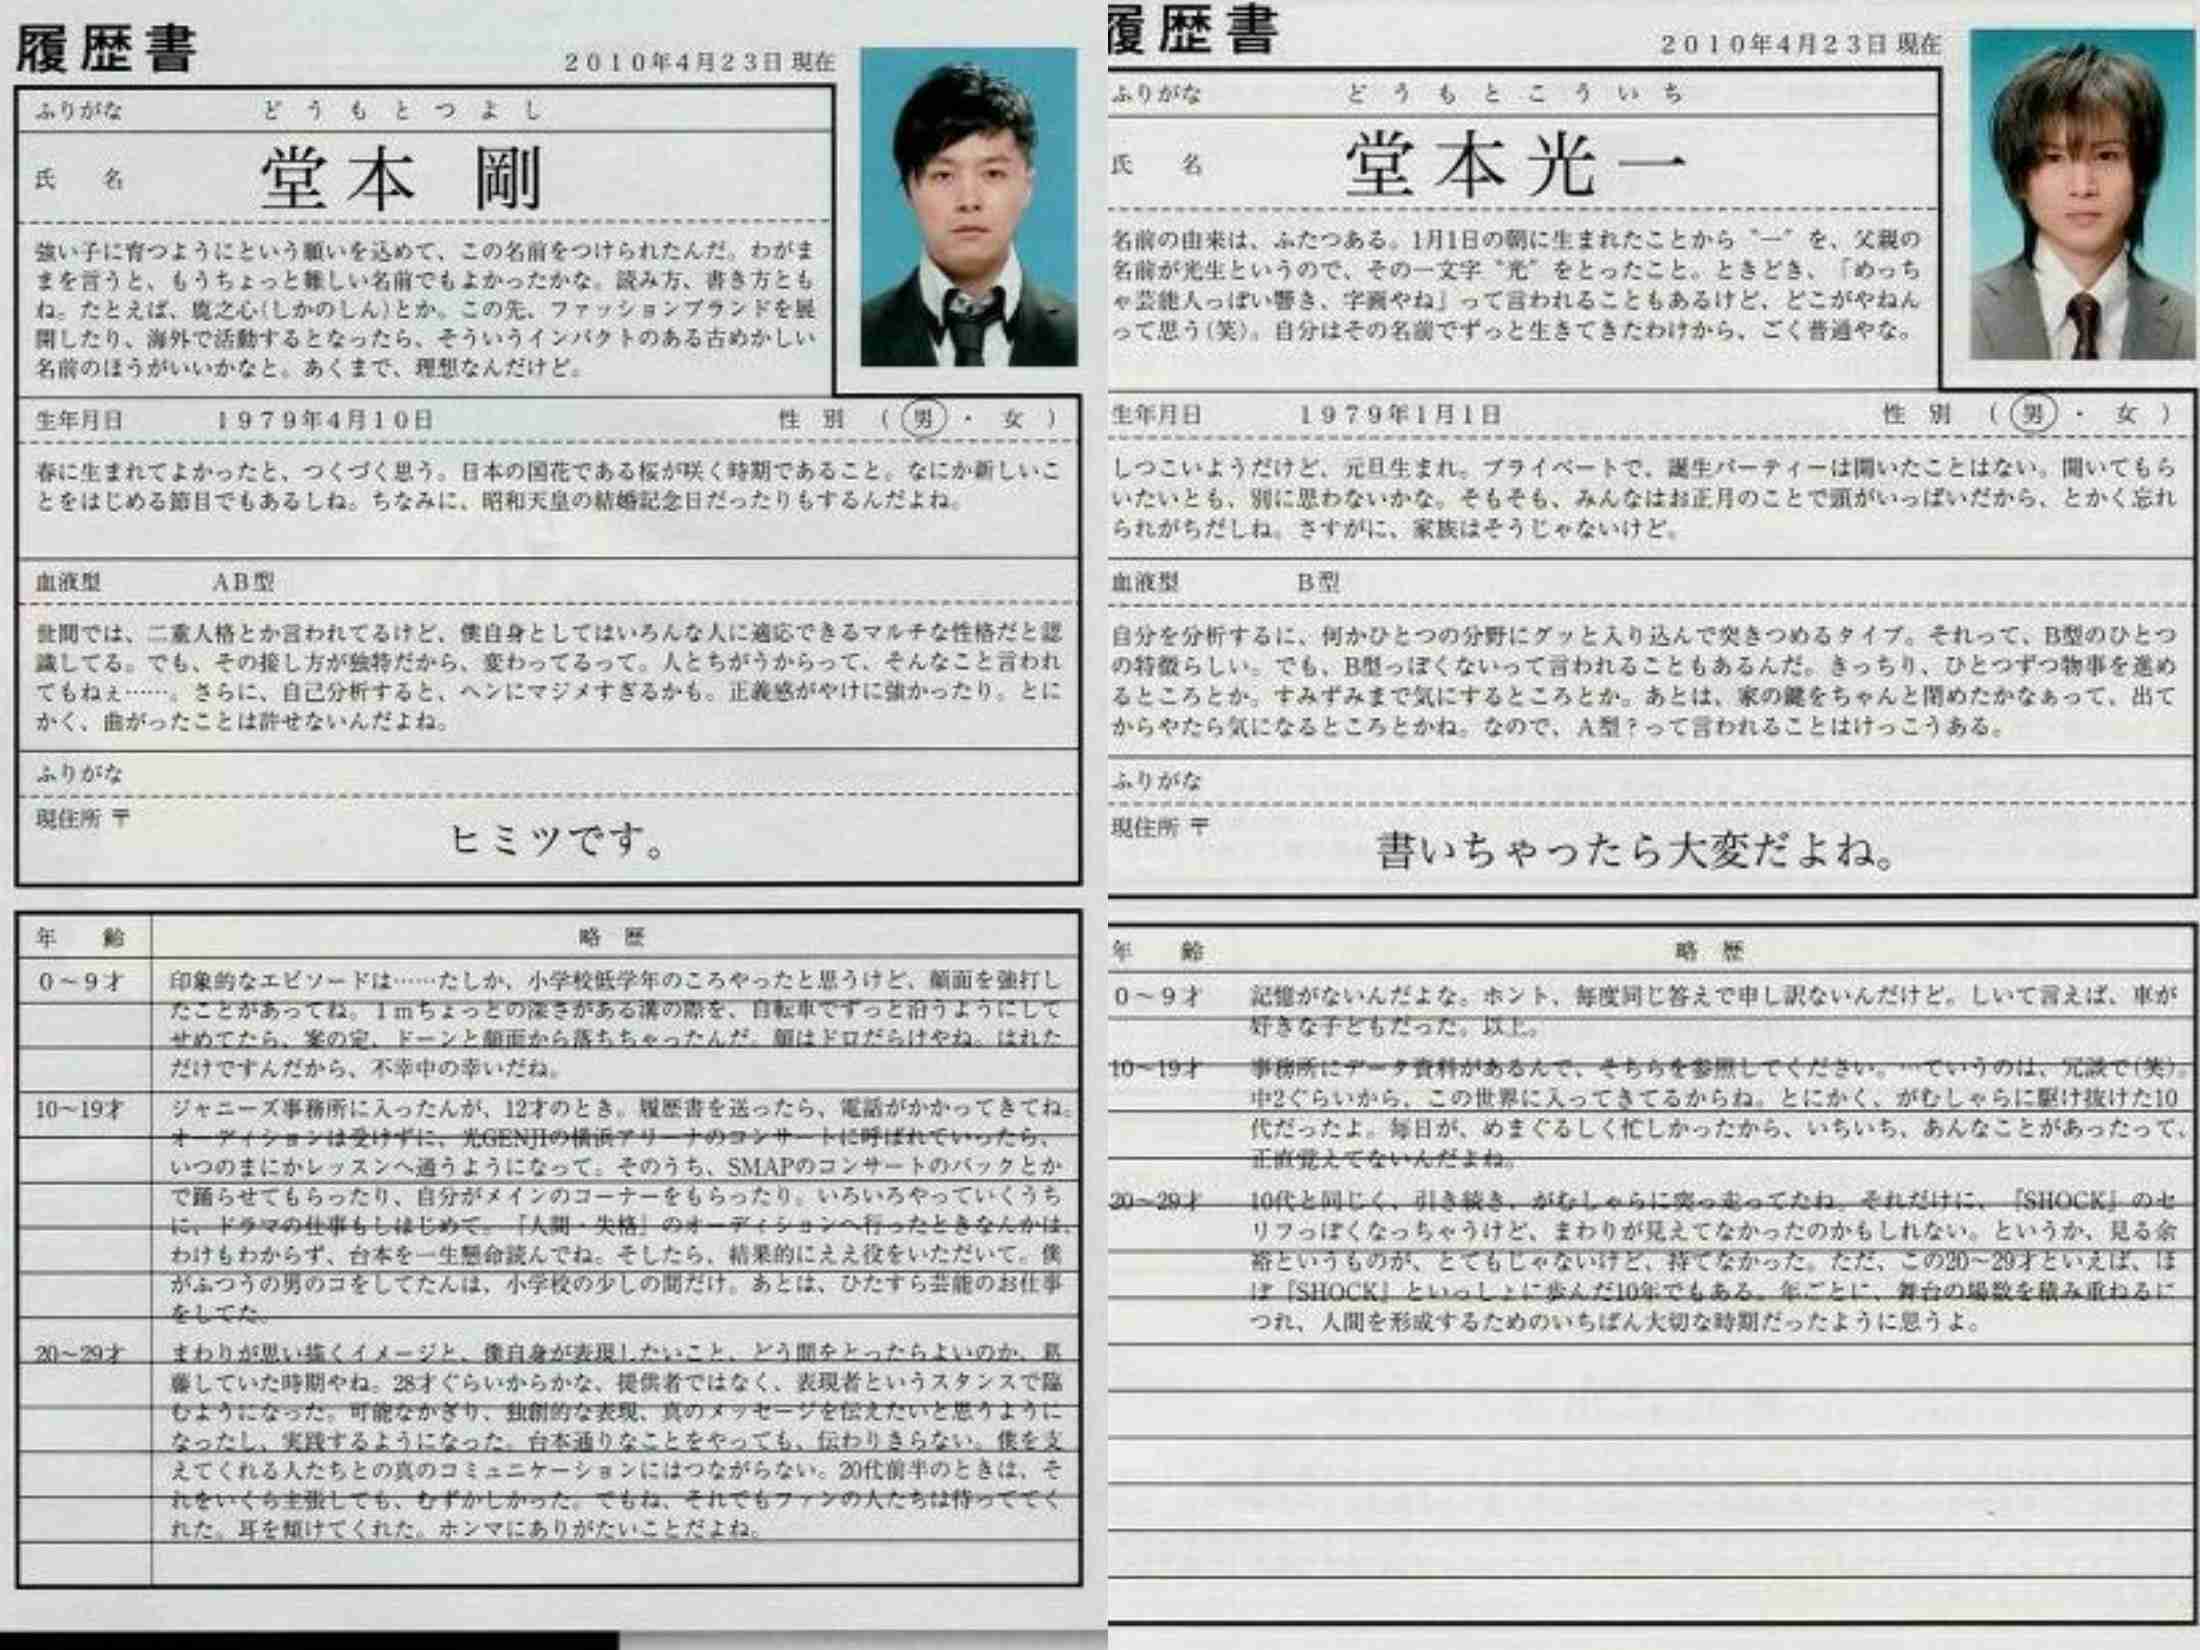 履歴書
2010年4月23日 現在
ふりがな どうもとつよし
氏 名 堂本 剛
強い子に育つようにという願いを込めて、この名前をつけられたんだ。わがま
まを言うと、もうちょっと難しい名前でもよかったかな。読み方、書き方とも
ね。たとえば、鹿之心(しかのしん)とか。この先、ファッションブランドを展
開したり、海外で活動するとなったら、そういうインパクトのある古めかしい
名前のほうがいいかなと。あくまで、理想なんだけど。
生年月日 1979年4月10日 性 別 (男・女)
春に生まれてよかったと、つくづく思う。日本の国花である桜が咲く時期であること。なにか新しいこ
とをはじめる節目でもあるしね。ちなみに、昭和天皇の結婚記念日だったりもするんだよね。
血液型 AB型
世間では、二重人格とか言われてるけど、僕自身としてはいろんな人に適応できるマルチな性格だと認
識してる。でも、その接し方が独特だから、変わってるって。人とちがうからって、そんなこと言われ
てもねぇ……。さらに、自己分析すると、ヘンにマジメすぎるかも。正義感がやけに強かったり。とに
かく、曲がったことは許せないんだよね。
ふりがな
現住所 〒
ヒミツです。
年 齢 略 歴
0〜9才 印象的なエピソードは……たしか、小学校低学年のころやったと思うけど、顔面を強打し
たことがあってね。1mちょっとの深さがある溝の際を、自転車でずっと沿うようにして
せめてたら、案の定、ドーンと顔面から落ちちゃったんだ。顔はドロだらけやね。はれた
だけですんだから、不幸中の幸いだね。
10〜19才 ジャニーズ事務所に入ったんが、12才のとき。履歴書を送ったら、電話がかかってきてね。
オーディションは受けずに、光GENJIの横浜アリーナのコンサートに呼ばれていったら、
いつのまにかレッスンへ通うようになって。そのうち、SMAPのコンサートのバックとか
で踊らせてもらったり、自分がメインのコーナーをもらったり。いろいろやっていくうち
に、ドラマの仕事もしはじめて。『人間・失格』のオーディションへ行ったときなんかは、
わけもわからず、台本を一生懸命読んでね。そしたら、結果的にええ役をいただいて。僕
がふつうの男のコをしてたんは、小学校の少しの間だけ。あとは、ひたすら芸能のお仕事
をしてた。
20〜29才 まわりが思い描くイメージと、僕自身が表現したいこと、どう間をとったらよいのか、葛
藤していた時期やね。28才ぐらいからかな、提供者ではなく、表現者というスタンスで臨
むようになった。可能なかぎり、独創的な表現、真のメッセージを伝えたいと思うように
なったし、実践するようになった。台本通りなことをやっても、伝わりきらない。僕を支
えてくれる人たちとの真のコミュニケーションにはつながらない。20代前半のときは、そ
れをいくら主張しても、むずかしかった。でもね、それでもファンの人たちは待っててく
れた。耳を傾けてくれた。ホンマにありがたいことだよね。
履歴書
2010年4月23日 現在
ふりがな どうもとこういち
氏 名 堂本光一
名前の由来は、ふたつある。1月1日の朝に生まれたことから〝一〟を、父親の
名前が光生というので、その一文字〝光〟をとったこと。ときどき、「めっち
ゃ芸能人っぽい響き、字画やね」って言われることもあるけど、どこがやねん
って思う(笑)。自分はその名前でずっと生きてきたわけから、ごく普通やな。
生年月日 1979年1月1日 性 別 (男・女)
しつこいようだけど、元旦生まれ。プライベートで、誕生パーティーは開いたことはない。開いてもら
いたいとも、別に思わないかな。そもそも、みんなはお正月のことで頭がいっぱいだから、とかく忘れ
られがちだしね。さすがに、家族はそうじゃないけど。
血液型 B型
自分を分析するに、何かひとつの分野にグッと入り込んで突きつめるタイプ。それって、B型のひとつ
の特徴らしい。でも、B型っぽくないって言われることもあるんだ。きっちり、ひとつずつ物事を進め
るところとか。すみずみまで気にするところとか。あとは、家の鍵をちゃんと閉めたかなぁって、出て
からやたら気になるところとかね。なので、A型?って言われることはけっこうある。
ふりがな
現住所 〒
書いちゃったら大変だよね。
年 齢 略 歴
0〜9才 記憶がないんだよな。ホント、毎度同じ答えで申し訳ないんだけど。しいて言えば、車が
好きな子どもだった。以上。
10〜19才 事務所にデータ資料があるんで、そちらを参照してください。…ていうのは、冗談で(笑)。
中2ぐらいから、この世界に入ってきてるからね。とにかく、がむしゃらに駆け抜けた10
代だったよ。毎日が、めまぐるしく忙しかったから、いちいち、あんなことがあったって、
正直覚えてないんだよね。
20〜29才 10代と同じく、引き続き、がむしゃらに突っ走ってたね。それだけに、『SHOCK』のセ
リフっぽくなっちゃうけど、まわりが見えてなかったのかもしれない。というか、見る余
裕というものが、とてもじゃないけど、持てなかった。ただ、この20〜29才といえば、ほ
ぼ『SHOCK』といっしょに歩んだ10年でもある。年ごとに、舞台の場数を積み重ねるに
つれ、人間を形成するためのいちばん大切な時期だったように思うよ。